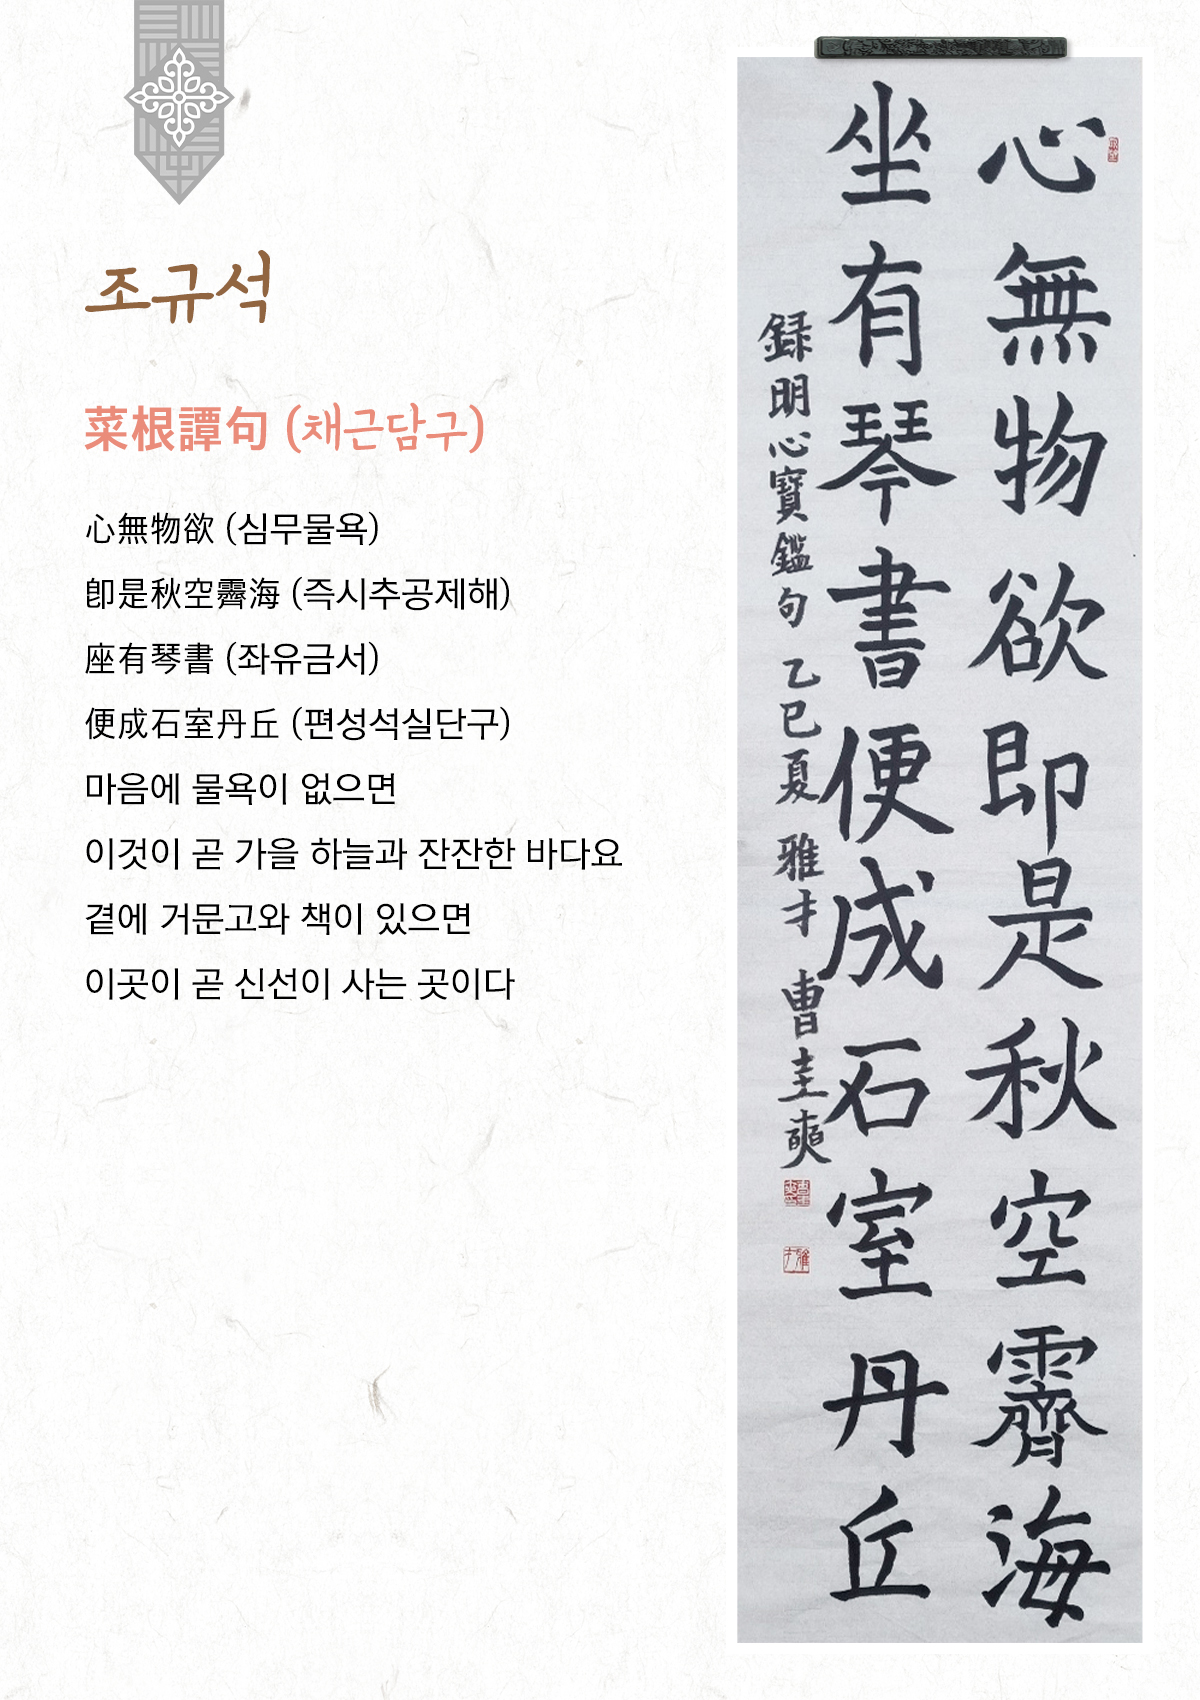 조규석
菜根譚句 (채근담구)
心無物欲 (심무물욕)
卽是秋空霽海 (즉시추공제해)
座有琴書 (좌유금서)
便成石室丹丘 (편성석실단구)
마음에 물욕이 없으면
이것이 곧 가을 하늘과 잔잔한 바다요
곁에 거문고와 책이 있으면
이곳이 곧 신선이 사는 곳이다
心無物欲即是秋空霽海
坐有琴書便成石室丹丘
録明心寶鑑句 乙巳夏 雅才 曺圭奭